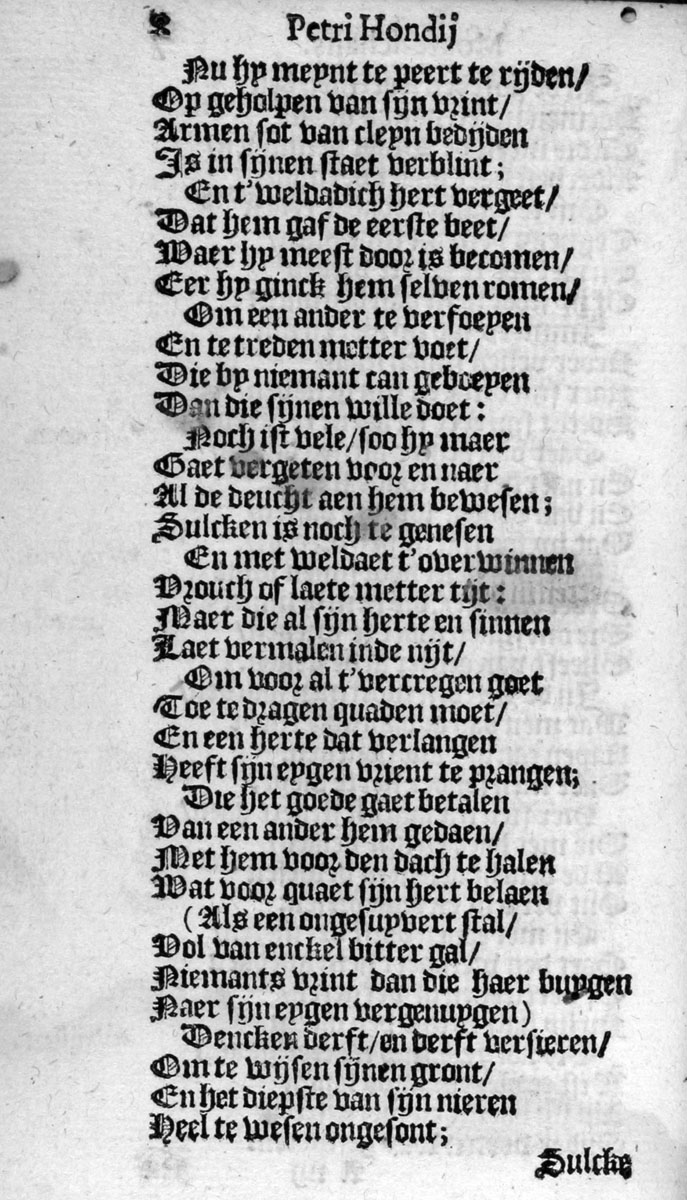 2 Petri Hondij
Nu hy meynt te peert te rijden/
Op geholpen van sijn vrint/
Armen sot van cleyn bedijden
Is in sijnen staet verblint;
En t'weldadich hert vergeet/
Dat hem gaf de eerste beet/
Waer hy meest door is becomen/
Eer hy ginck hem selven romen/
Om een ander te verfoeyen
En te treden metter voet/
Die by niemant can geboeyen
Dan die sijnen wille doet:
Noch ist vele/soo hy maer
Gaet vergeten voor en naer
Al de deucht aen hem bewesen;
Sulcken is noch te genesen
En met weldaet t'overwinnen
Vrouch of laete metter tijt:
Maer die al sijn herte en sinnen
Laet vermalen inde nijt/
Om voor al t'vercregen goet
Toe te dragen quaden moet/
En een herte dat verlangen
Heeft sijn eygen vrient te prangen;
Die het goede gaet betalen
Van een ander hem gedaen/
Met hem voor den dach te halen
Wat voor quaet sijn hert belaen
(Als een ongesuyvert stal/
Vol van enckel bitter gal/
Niemants vrint dan die haer buygen
Naer sijn eygen vergenuygen)
Dencken derft/en derft versieren/
Om te wijsen sijnen gront/
En het diepste van sijn nieren
Heel te wesen ongesont;
Sulcke